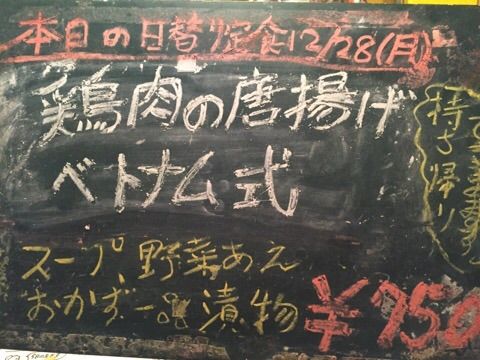 本日の日替定食12/28(月)
鶏肉の唐揚げ
ベトナム式
スープ、野菜あえ
おかず一品、漬物
¥750
持ち帰り